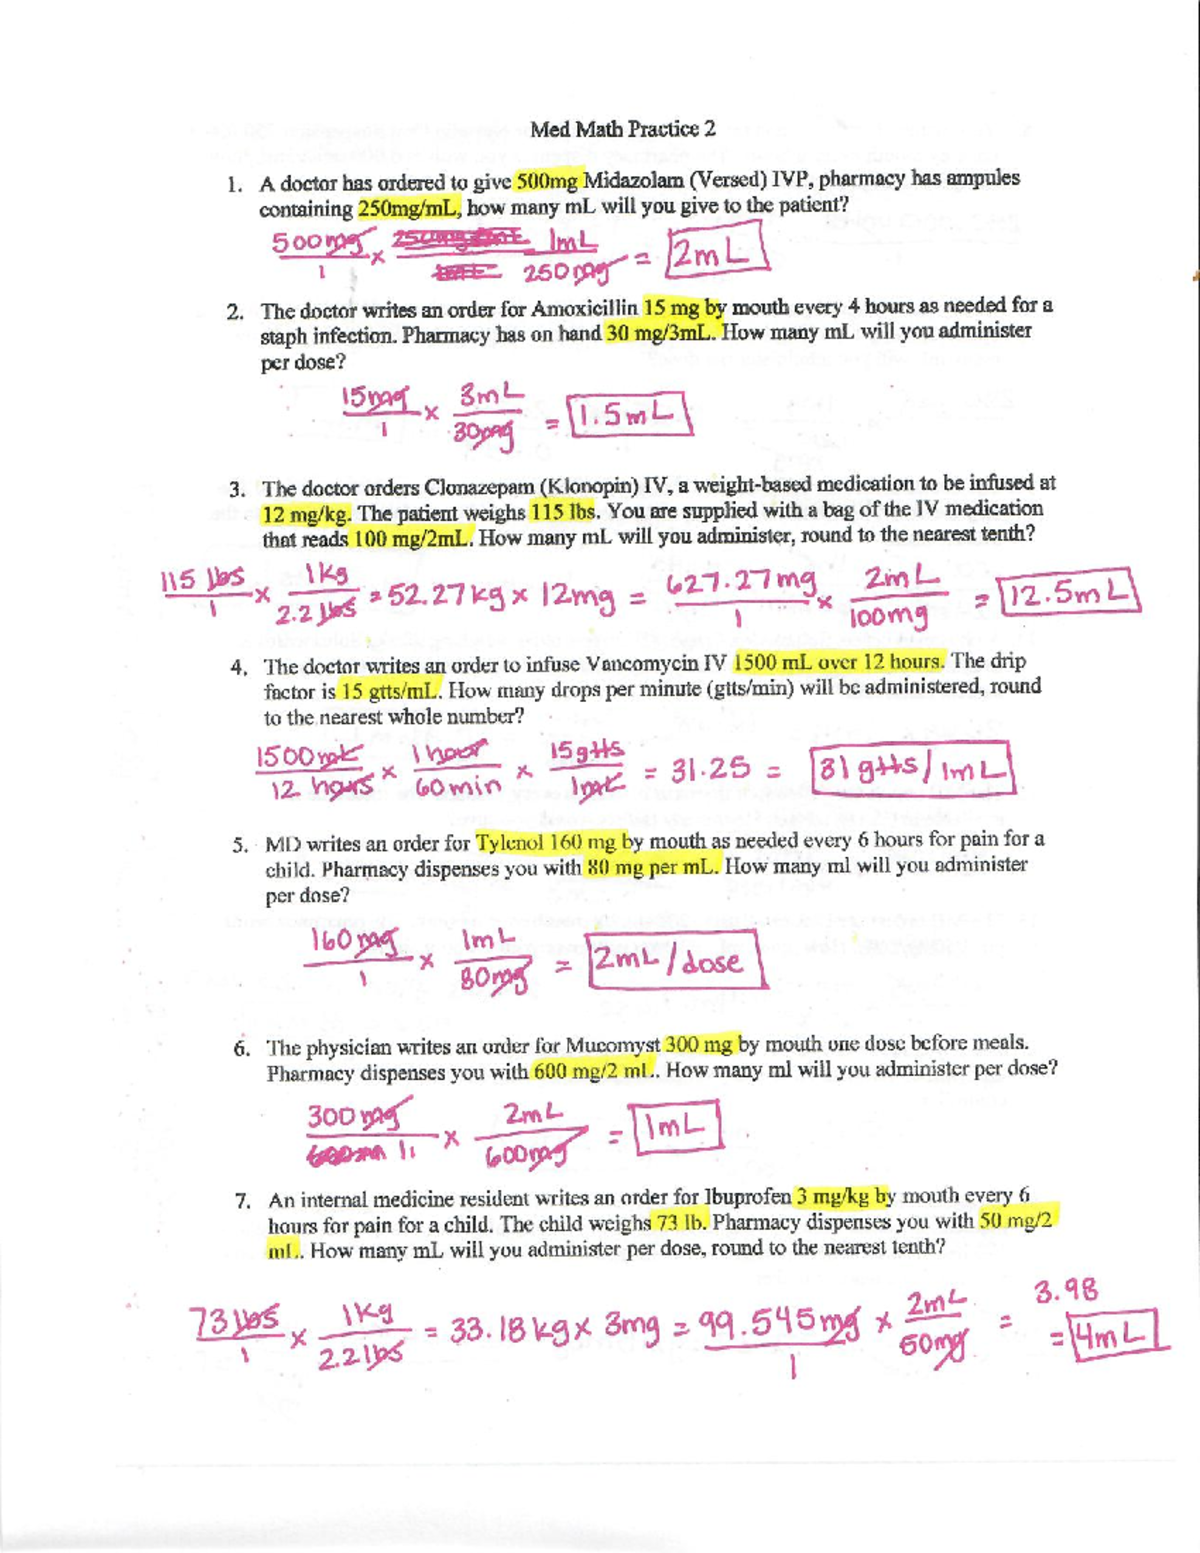 Med Math Practice 2
1. A doctor has ordered to give 500mg Midazolam (Versed) IVP, pharmacy has ampules
containing 250mg/mL, how many mL will you give to the patient?
500mg/1 x 1mL/250mg = 2mL
2. The doctor writes an order for Amoxicillin 15 mg by mouth every 4 hours as needed for a
staph infection. Pharmacy has on hand 30 mg/3mL. How many mL will you administer
per dose?
15mg/1 x 3mL/30mg = 1.5mL
3. The doctor orders Clonazepam (Klonopin) IV, a weight-based medication to be infused at
12 mg/kg. The patient weighs 115 lbs. You are supplied with a bag of the IV medication
that reads 100 mg/2mL. How many mL will you administer, round to the nearest tenth?
115 lbs/1 x 1kg/2.2 lbs = 52.27kg x 12mg = 627.27mg/1 x 2mL/100mg = 12.5mL
4. The doctor writes an order to infuse Vancomycin IV 1500 mL over 12 hours. The drip
factor is 15 gtts/mL. How many drops per minute (gtts/min) will be administered, round
to the nearest whole number?
1500mL/12 hours x 1hour/60min x 15gtts/1mL = 31.25 = 31gtts/1mL
5. MD writes an order for Tylenol 160 mg by mouth as needed every 6 hours for pain for a
child. Pharmacy dispenses you with 80 mg per mL. How many ml will you administer
per dose?
160mg/1 x 1mL/80mg = 2mL/dose
6. The physician writes an order for Mucomyst 300 mg by mouth one dose before meals.
Pharmacy dispenses you with 600 mg/2 mL. How many ml will you administer per dose?
300mg/1 x 2mL/600mg = 1mL
7. An internal medicine resident writes an order for Ibuprofen 3 mg/kg by mouth every 6
hours for pain for a child. The child weighs 73 lb. Pharmacy dispenses you with 50 mg/2
mL. How many mL will you administer per dose, round to the nearest tenth?
73lbs/1 x 1kg/2.2lbs = 33.18kg x 3mg = 99.545mg/1 x 2mL/50mg = 3.98
= 4mL